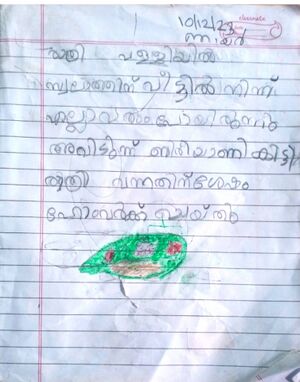 classmate
10/12/23
ഞായർ
രാത്രി പള്ളിയിൽ
സ്വലാത്തിന് വീട്ടിൽ നിന്ന്
എല്ലാവരും പോയിരുന്നു
അവിടുന്ന് ബിരിയാണി കിട്ടി
രാത്രി വന്നതിന് ശേഷം
ഹോംവർക്ക് ചെയ്തു